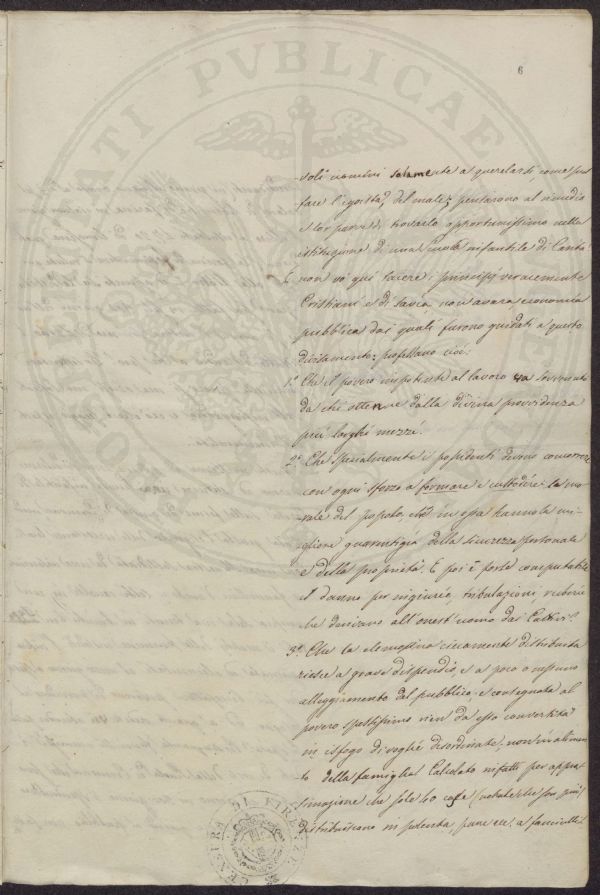 6
voli uomini solamente a querelarsi, come suol
fare l'egoista, del male; pensarono al rimedio
e lor parve di trovarlo opportunissimo nella
istituzione di una scuola infantile di Carità
E non vo' qui tacere i principj veracemente
Cristiani e di savia, non avara, economia
pubblica dai quali furono guidati a questo
divisamento: professano cioè:
1.° Che il povero impotente al lavoro va sovvenuto
da chi ottenne dalla divina provvidenza
più larghi mezzi.
2.° Che specialmente i possidenti devono concorrere
con ogni sforzo a formare e custodire la mo-
rale del popolo, chè in essa hanno la mi-
gliore guarentigia della sicurezza personale
e della proprietà. E poi è forse computabile
il danno per ingiurie, tribulazioni, ruberie
che derivano all'onest'uomo dai Cattivi?
3.° Che la elemosina ciecamente distribuita
riesce a grave dispendio, e a poco o nessuno
alleggiamento del pubblico; e consegnata al
povero spessissimo vien da esso convertita
in isfogo di voglie disordinate, non in alimen-
to della famiglia. Calcolato infatti per appros-
simazione che sole 40 case (notate che son più)
distribuiscano in polenta, pane ec. a fanciulli